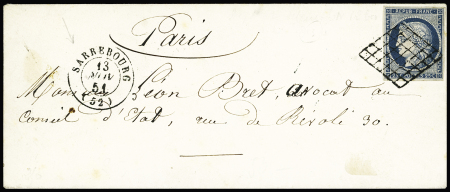 Paris
REPUB. FRANC.
SARREBOURG
13
NOV
51
(52)
Monsieur Léon Bret, avocat au
Conseil d'Etat, rue de Rivoli 30.